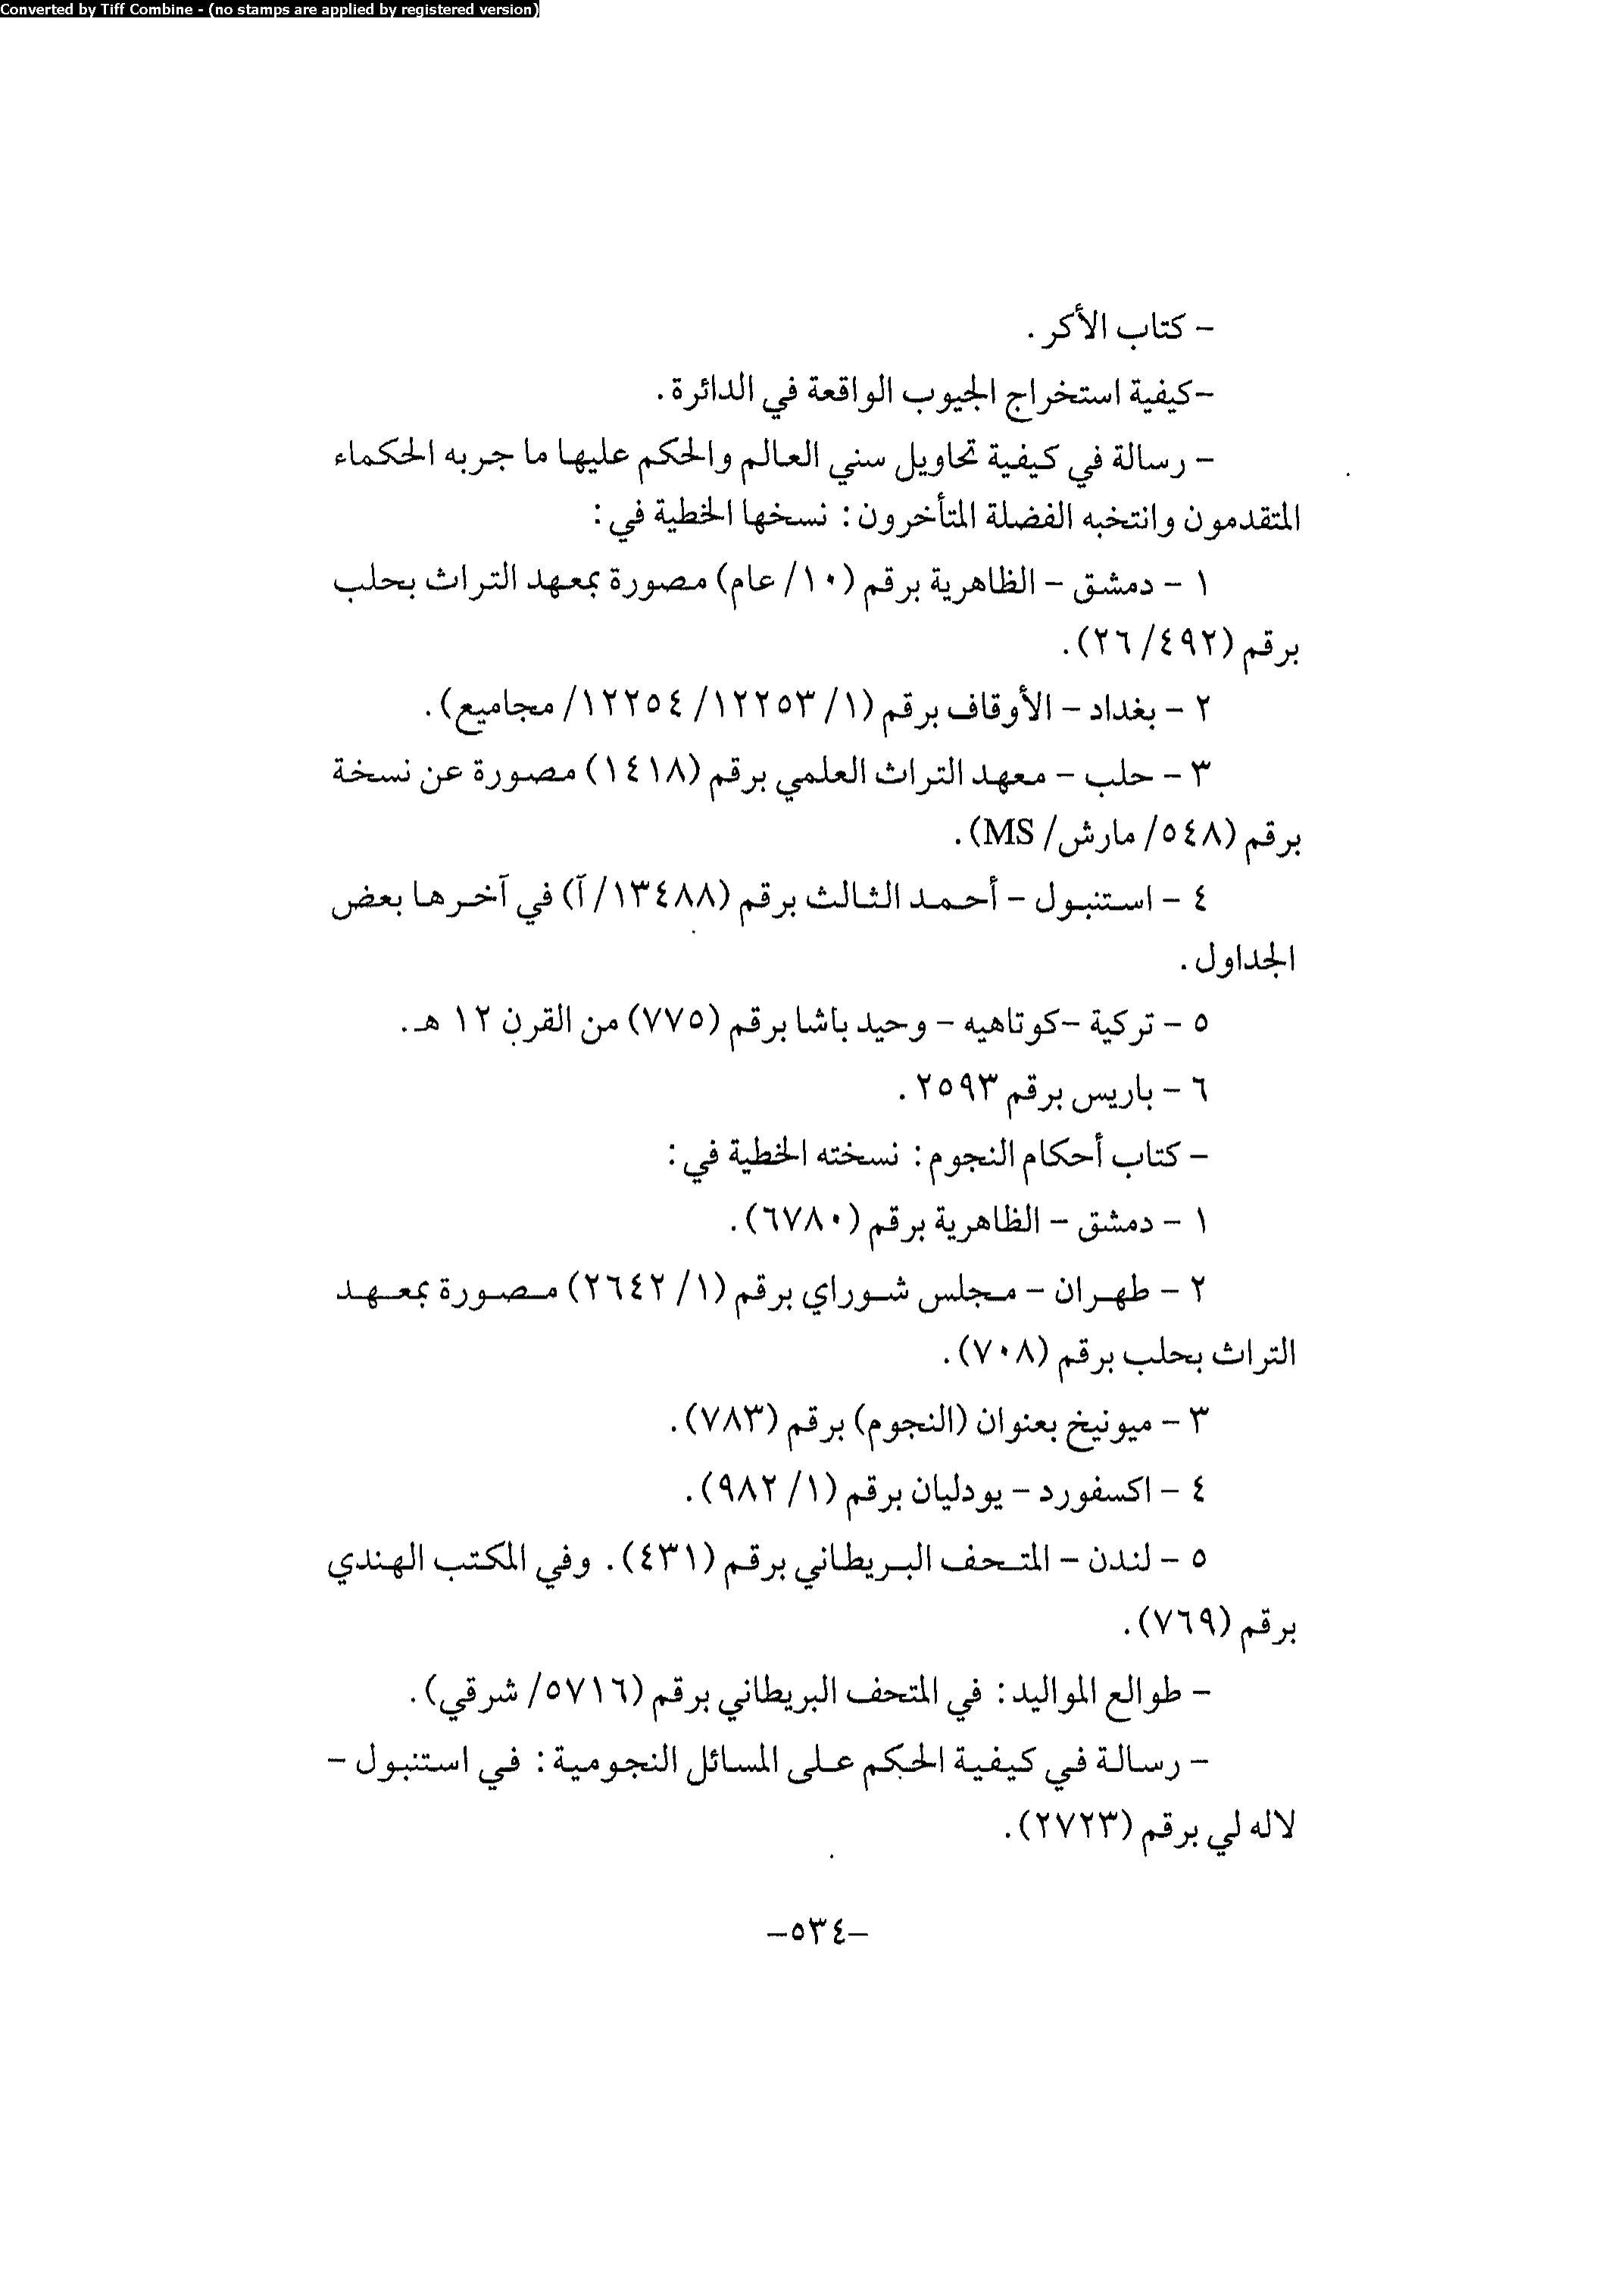 Converted by Tiff Combine - (no stamps are applied by registered version)
- كتاب الأكر .
-كيفية استخراج الجيوب الواقعة في الدائرة.
- رسالة في كيفية تحاويل سني العالم والحكم عليها ما جربه الحكماء
المتقدمون وانتخبه الفضلة المتأخرون: نسخها الخطية في:
١ - دمشق - الظاهرية برقم (١٠/ عام) مصورة بمعهد التراث بحلب
برقم (٤٩٢/ ٢٦).
٢ - بغداد - الأوقاف برقم (١/ ١٢٢٥٣/ ١٢٢٥٤/ مجاميع).
٣ - حلب - معهد التراث العلمي برقم (١٤١٨) مصورة عن نسخة
برقم (٥٤٨/ مارش/ MS).
٤ - استنبول - أحمد الثالث برقم (١٣٤٨٨/ آ) في آخرها بعض
الجداول.
٥ - تركية -كوتاهيه - وحيد باشا برقم (٧٧٥) من القرن ١٢ هـ.
٦ - باريس برقم ٢٥٩٣.
- كتاب أحكام النجوم: نسخته الخطية في:
١ - دمشق - الظاهرية برقم (٦٧٨٠).
٢ - طهران - مجلس شوراي برقم (١/ ٢٦٤٢) مصورة بمعهد
التراث بحلب برقم (٧٠٨).
٣ - ميونيخ بعنوان (النجوم) برقم (٧٨٣).
٤ - اكسفورد - يودليان برقم (١/ ٩٨٢).
٥ - لندن - المتحف البريطاني برقم (٤٣١). وفي المكتب الهندي
برقم (٧٦٩).
- طوالع المواليد: في المتحف البريطاني برقم (٥٧١٦/ شرقي).
- رسالة في كيفية الحكم على المسائل النجومية: في استنبول -
لاله لي برقم (٢٧٢٣).
-٥٣٤-